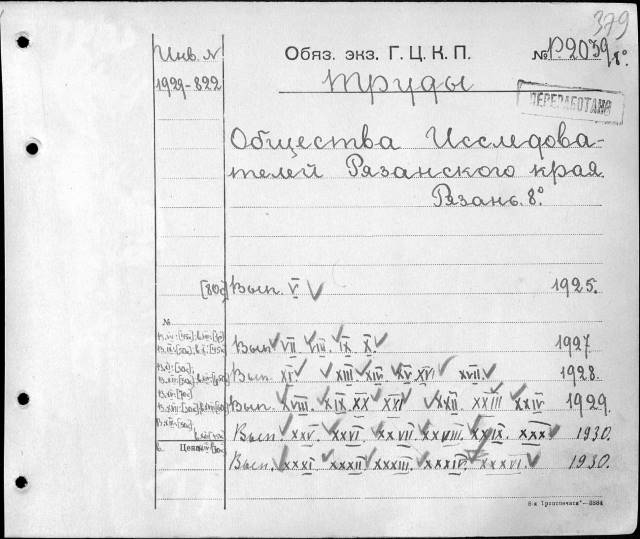 379
Инв. N
Обяз. экз. Г. Ц. К. П. № Р2039/8°
1929-822
Труды
ПЕРЕРАБОТАНО
Общества Исследова-
телей Рязанского края.
Рязань. 8°.
Вып. V 1925.
№
Вып. VII VIII. IX X 1927.
Вып. XI. XIII XIV XV XVI XVII. 1928.
Вып. XVIII. XIX XX XXI XXII XXIII XXIV 1929.
Вып. XXV. XXVI XXVII XXVIII XXIX. XXX 1930.
Вып. XXXI XXXII XXXIII. XXXIV. XXXVI. 1930.